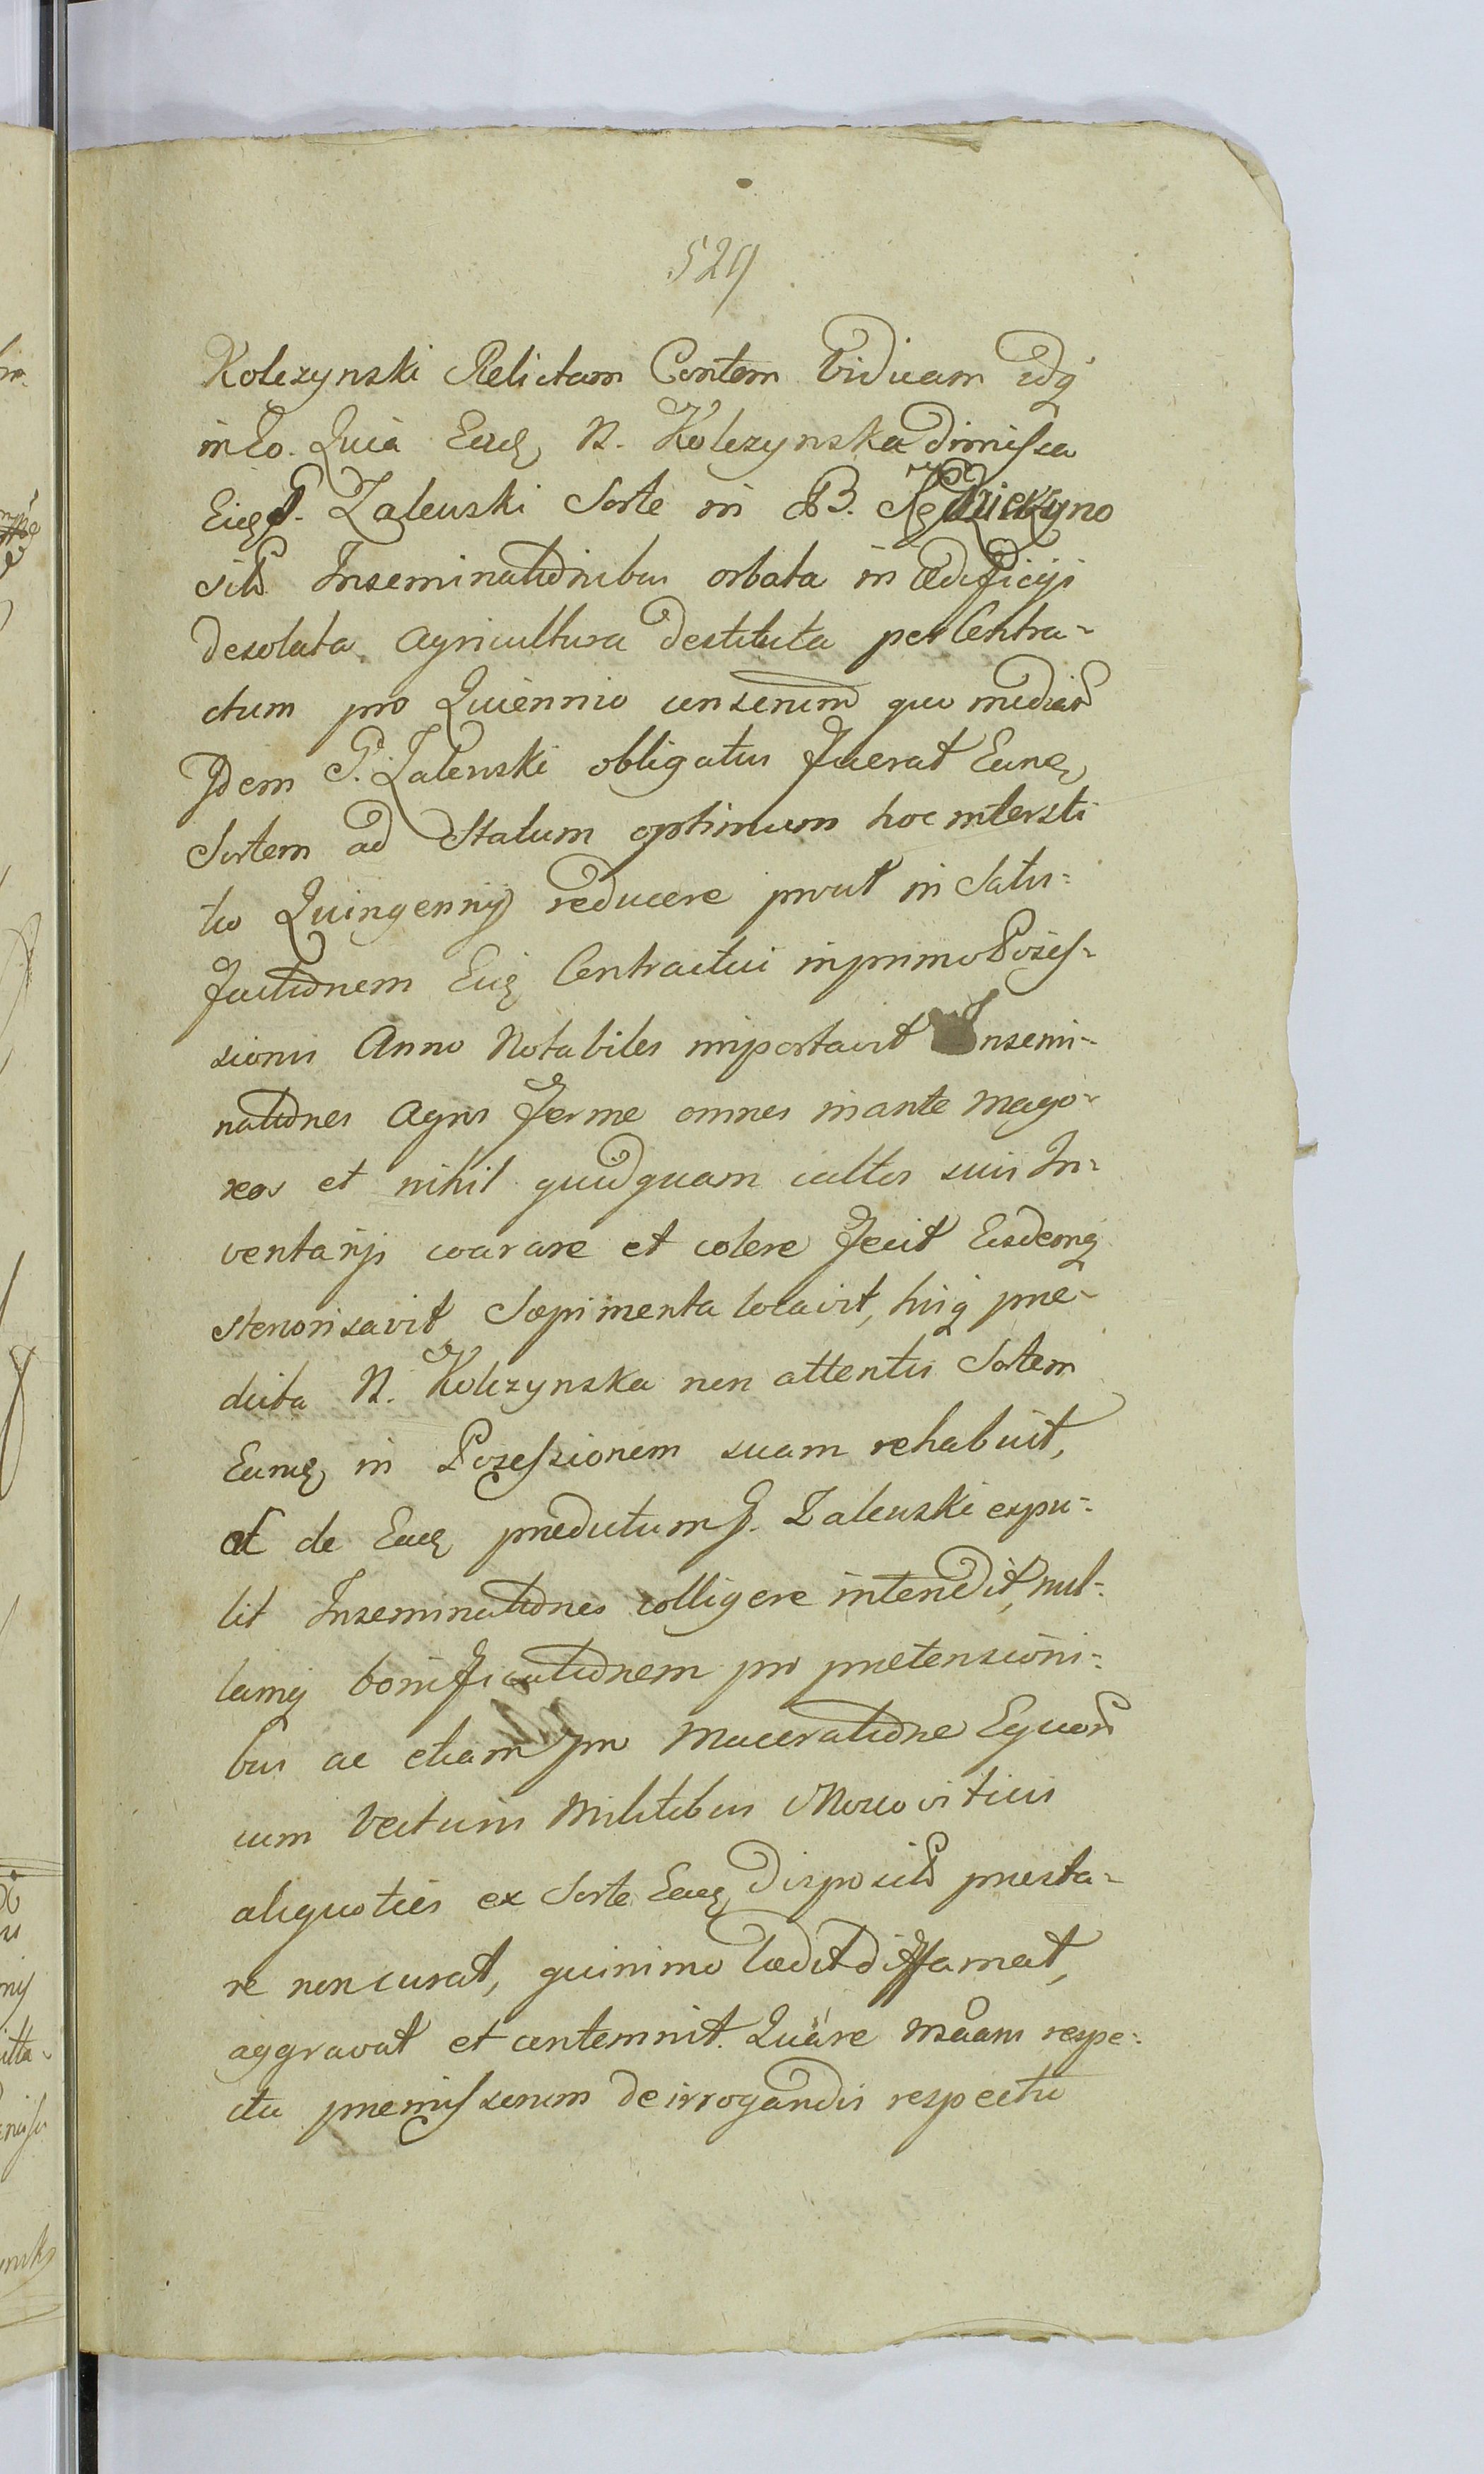 529
Kolczynski Relictam Contem Viduam idq
in Eo. Quia Eadq N. Kolczynska dimissa
Eidq P. Zalewski Sorte in B.
sita Inseminationibus orbata in ædificijs
desolata agricultura destituta per Contra-
ctum pro Quiennio conserum quo mediante
Idem P. Zalewski obligatus fuerat Eandq
Sortem ad Statum optimum hoc intersti
tio Quingennij reducere prout in Satis-
factionem Eiq Contractui in primo Poses-
sionis Anno Notabiles importavit Insemi-
nationes Agros ferme omnes in ante mago-
reos et nihil quidquam cultos suis In-
ventarijs coarare et colere fecit Eosdemq
stercorisavit Sæpimenta locavit, hisq præ-
dicta N. Kolczynska non attentis Sortem
Eamq in Possessionem suam rehabuit,
et de Eadq prædictum P. Zalewski expu-
lit Inseminationes colligere intendit, nul-
lamq bonificationem pro prætensioni-
bus ac etiam pro Maceratione Equor
cum Vecturis Militibus Moscoviticis
aliquoties ex Sorte Eadq disposit præsta-
re non curat, quinimo lædit diffamat,
aggravat et contemnit. Quare insaam respe-
ctu præmissorum de irrogandis respectu